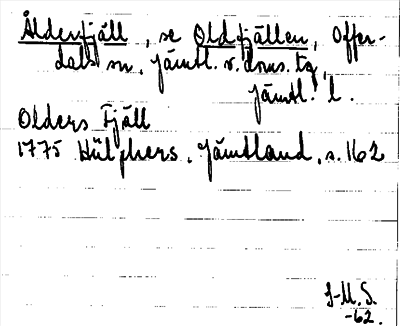 Ålderfjäll, se Oldfjällen, Offer-
dals sn, Jämtl. v. doms. tg,
Jämtl. l.
Olders Fjäll
1775 Hülphers, Jämtland, s. 162
J-M.S.
-62.